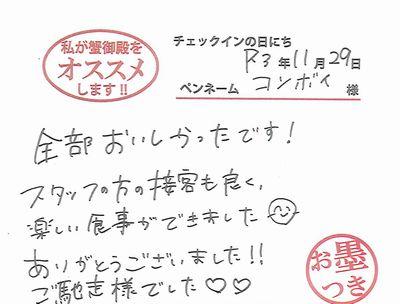 私が蟹御殿を
オススメ
します!!
チェックインの日にち
R3年11月29日
ペンネーム コンボイ 様
全部おいしかったです!
スタッフの方の接客も良く、
楽しい食事ができました
ありがとうございました!!
ご馳走様でした♡♡
お墨
つき